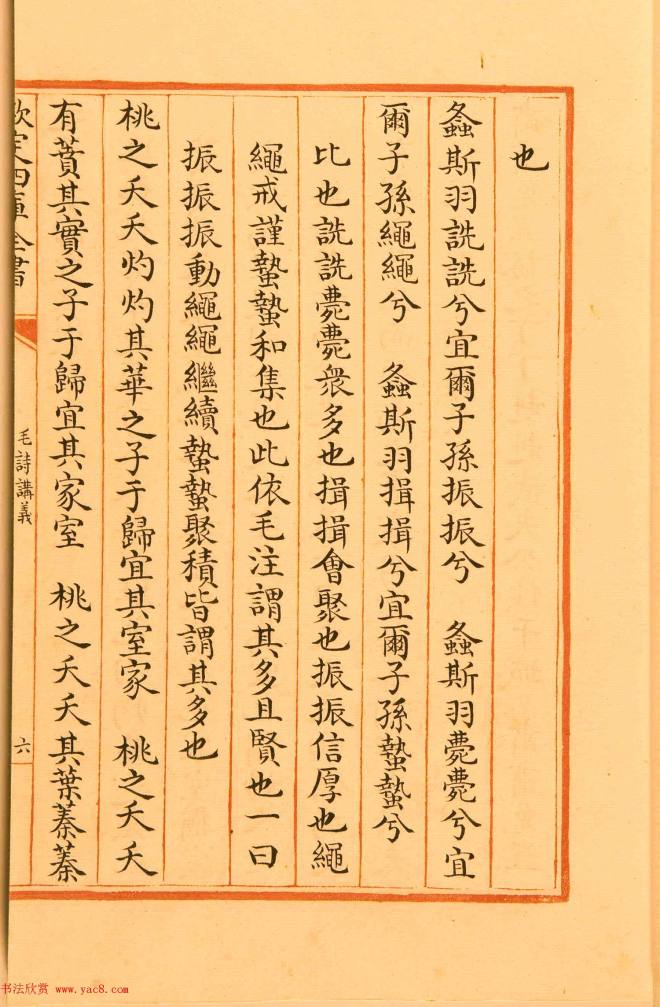 也
螽斯羽詵詵兮宜爾子孫振振兮　螽斯羽薨薨兮宜
爾子孫繩繩兮　螽斯羽揖揖兮宜爾子孫蟄蟄兮
比也詵詵薨薨衆多也揖揖會聚也振振信厚也繩
繩戒謹蟄蟄和集也此依毛注謂其多且賢也一曰
振振振動繩繩繼續蟄蟄聚積皆謂其多也
桃之夭夭灼灼其華之子于歸宜其室家　桃之夭夭
有蕡其實之子于歸宜其家室　桃之夭夭其葉蓁蓁
欽定四庫全書
毛詩講義
六
书法欣赏 www.yac8.com